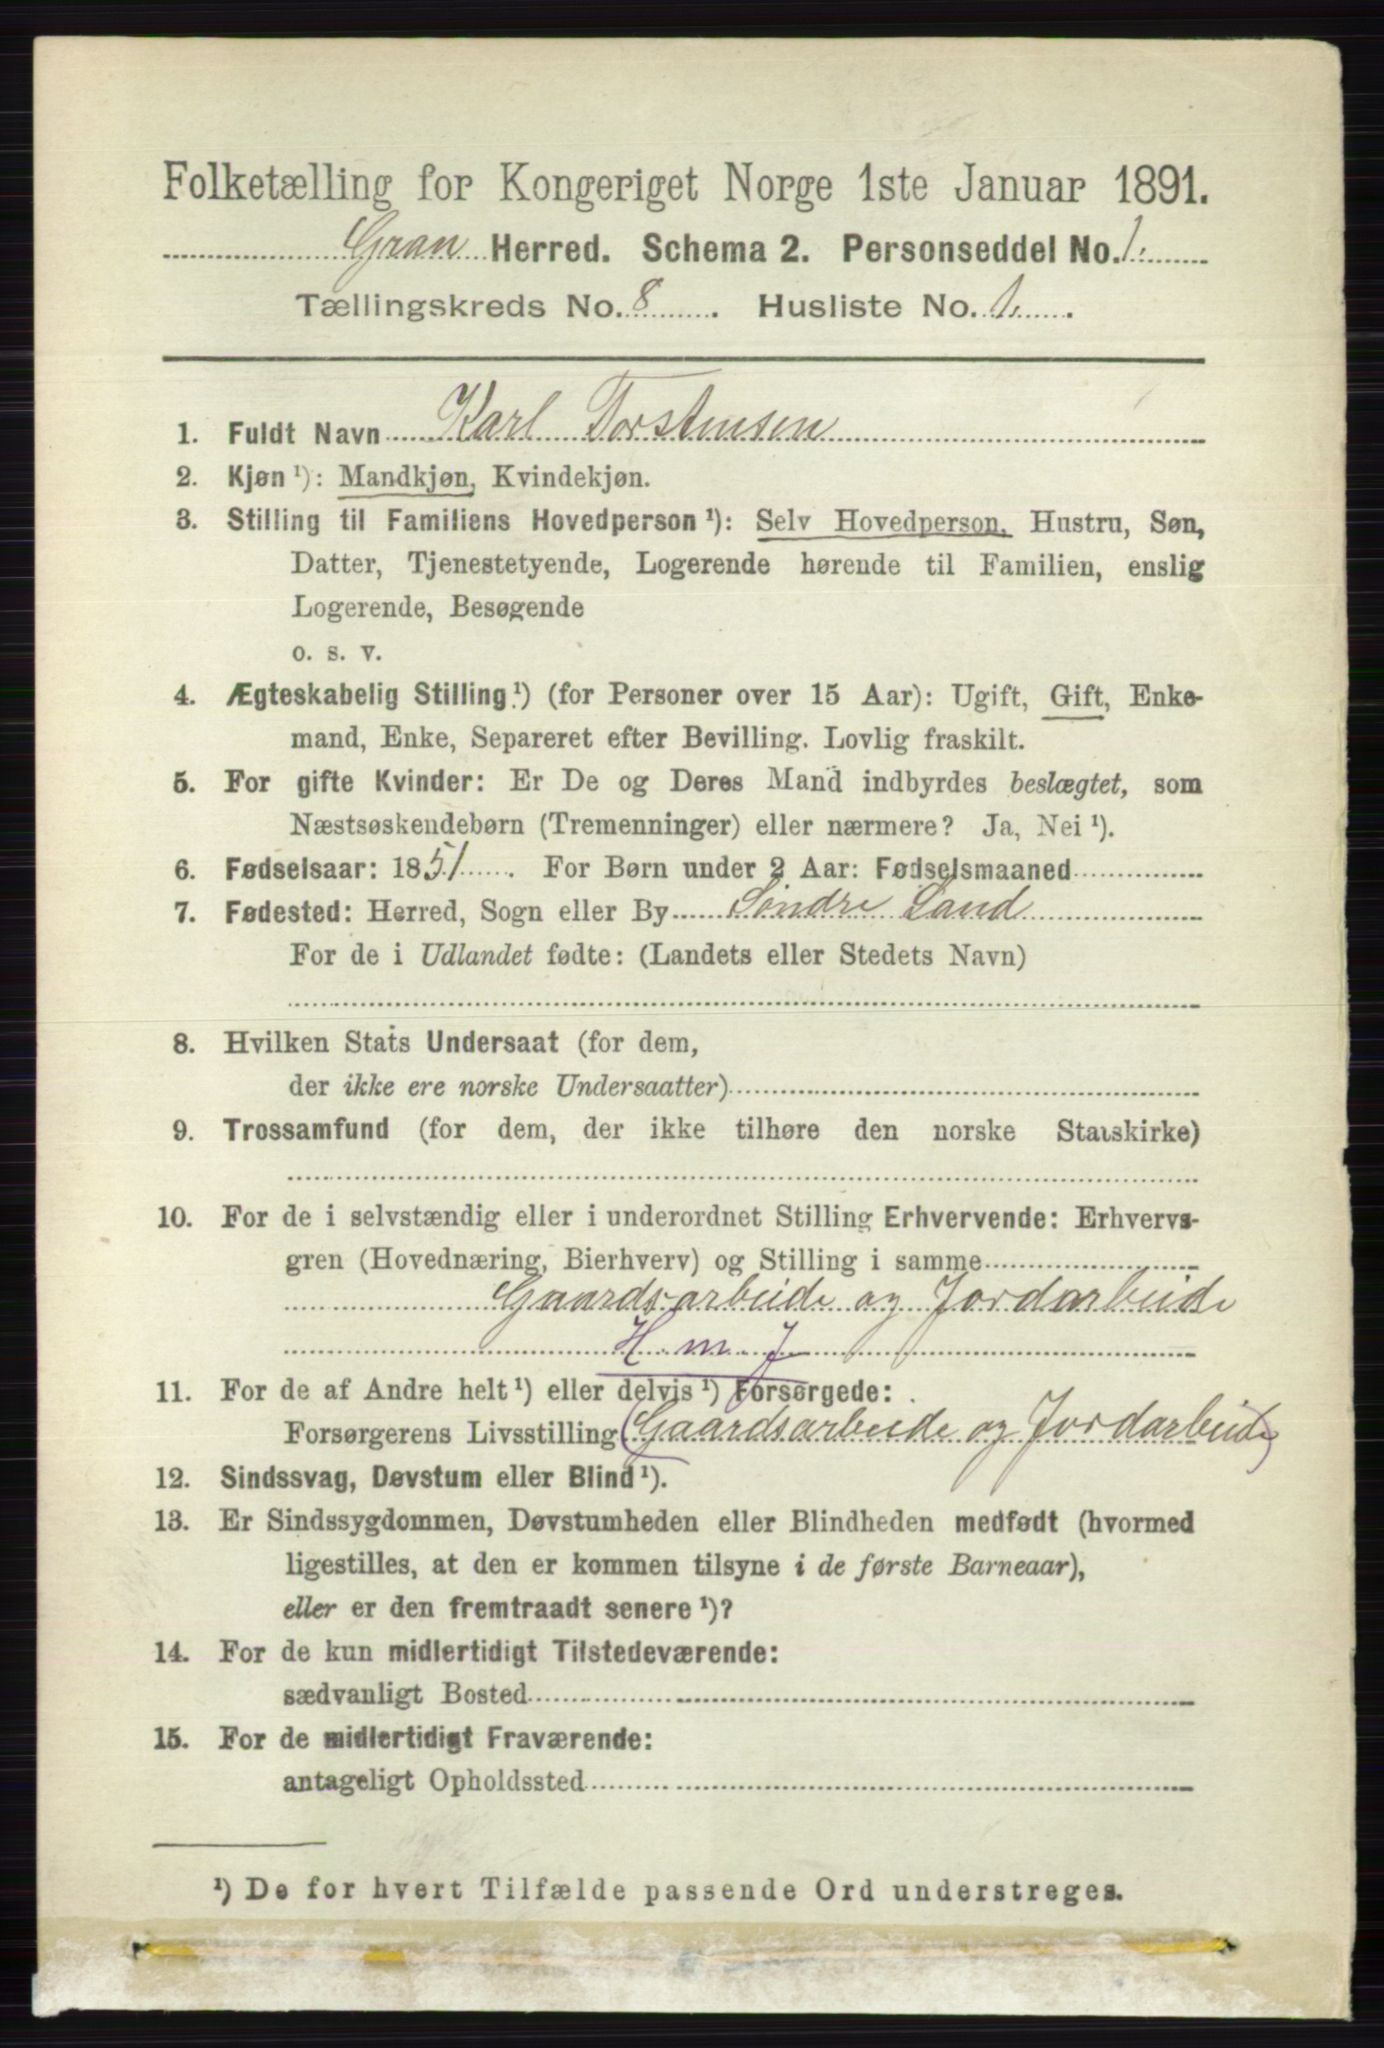 Folketælling for Kongeriget Norge 1ste Januar 1891.
Gran Herred. Schema 2. Personseddel No. 1.
Tællingskreds No. 8. Husliste No. 1.
1. Fuldt Navn Karl Torstensen
2. Kjøn ¹): Mandkjøn, Kvindekjøn.
3. Stilling til Familiens Hovedperson ¹): Selv Hovedperson, Hustru, Søn,
Datter, Tjenestetyende, Logerende hørende til Familien, enslig
Logerende, Besøgende
o. s. v.
4. Ægteskabelig Stilling ¹) (for Personer over 15 Aar): Ugift, Gift, Enke-
mand, Enke, Separeret efter Bevilling. Lovlig fraskilt.
5. For gifte Kvinder: Er De og Deres Mand indbyrdes beslægtet, som
Næstsøskendebørn (Tremenninger) eller nærmere? Ja, Nei ¹).
6. Fødselsaar: 1851. For Børn under 2 Aar: Fødselsmaaned
7. Fødested: Herred, Sogn eller By Søndre Land
For de i Udlandet fødte: (Landets eller Stedets Navn)
8. Hvilken Stats Undersaat (for dem,
der ikke ere norske Undersaatter)
9. Trossamfund (for dem, der ikke tilhøre den norske Statskirke)
10. For de i selvstændig eller i underordnet Stilling Erhvervende: Erhvervs-
gren (Hovednæring, Bierhverv) og Stilling i samme
Gaardsarbeide og Jordarbeide
H m J
11. For de af Andre helt ¹) eller delvis ¹) Forsørgede:
Forsørgerens Livsstilling (Gaardsarbeide og Jordarbeide)
12. Sindssvag, Døvstum eller Blind ¹).
13. Er Sindssygdommen, Døvstumheden eller Blindheden medfødt (hvormed
ligestilles, at den er kommen tilsyne i de første Barneaar),
eller er den fremtraadt senere ¹)?
14. For de kun midlertidigt Tilstedeværende:
sædvanligt Bosted
15. For de midlertidigt Fraværende:
antageligt Opholdssted
¹) De for hvert Tilfælde passende Ord understreges.